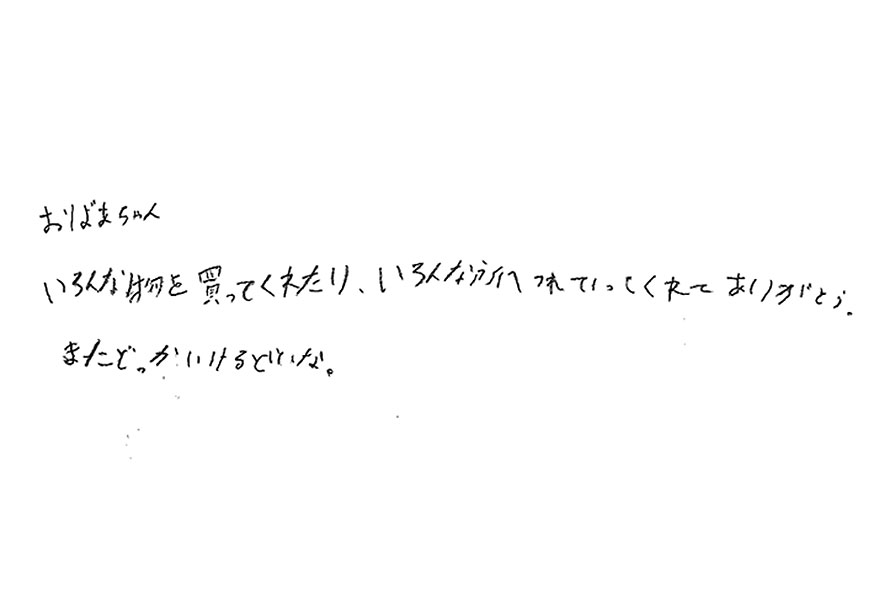 おばあちゃん
いろんな物を買ってくれたり、いろんな所へつれていってくれてありがとう。
またどっかいけるといいな。